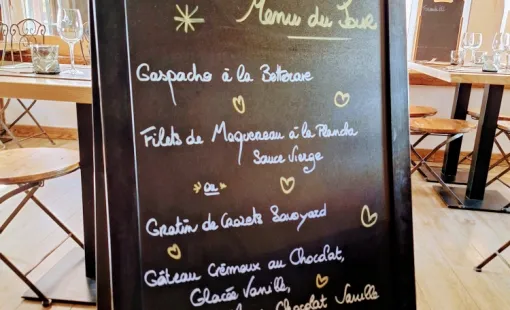 Menu du Jour
Gaspacho à la Betterave
Filets de Maquereau à la Plancha
Sauce Vierge
"ou"
Gratin de Crozets Savoyard
Gâteau Crémeux au Chocolat,
Glacée Vanille,
Chocolat Vanille